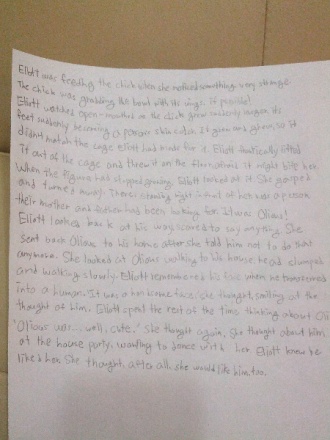 Elliott was feeding the chick when she noticed something very strange.
The chick was grabbing the bowl with its wings. It possible!
Elliott watched open-mouthed as the chick grew suddenly larger, its
feet suddenly becoming a skin color. It grew and grew, so it
didn't match the cage Elliott had made for it. Elliott frantically lifted
it out of the cage and threw it on the floor, afraid it might bite her.
When the figure had stopped growing, Elliott looked at it. She gasped
and turned away. There, standing right in front of her was a person
their mother and had been looking for. It was Olious!
Elliott looked back at his way, scared to say anything. She
sent back Olious to his home after she told him not to do that
anymore. She looked at Olious walking to his house, head
and walking slowly. Elliott remembered his face when he transformed
into a human. It was a handsome face, she thought, smiling at the
thought of him. Elliott spent the rest of the time thinking about Oli
"Olious was... well, cute." She thought again. She thought about him
at the house party, wanting to dance with her. Elliott knew he
liked her. She thought, after all, she would like him, too.